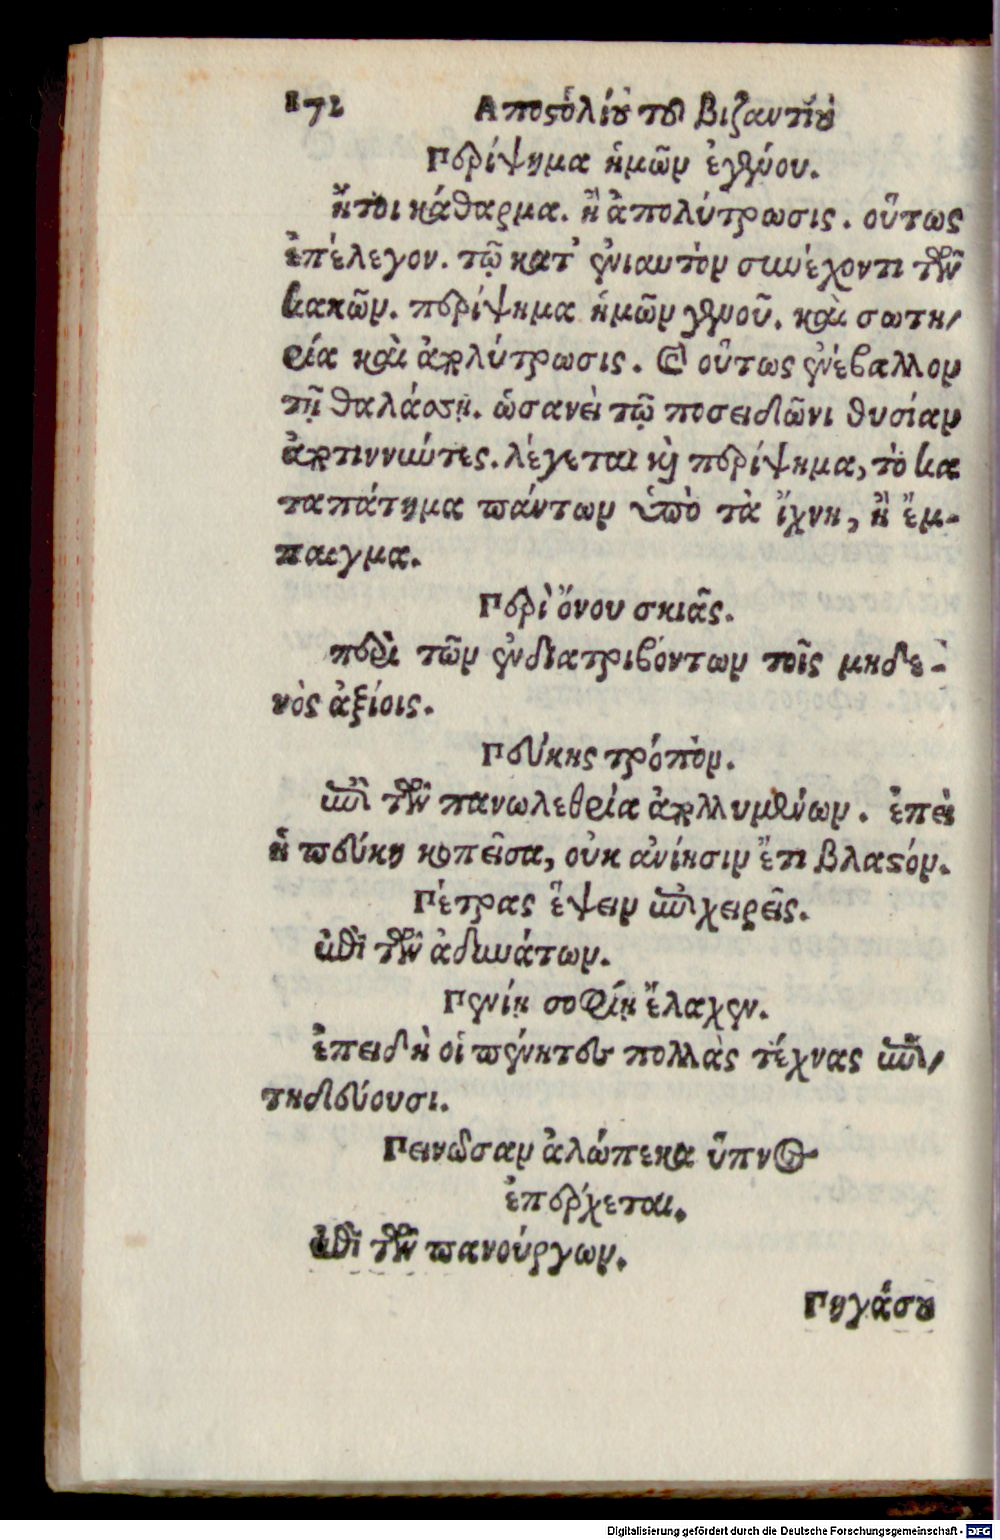 172 Αποστολίου του Βιζαντίου
Περίψημα ἡμῶν ἐγένου.
ἤτοι κάθαρμα. ἢ ἀπολύτρωσις. οὕτως
ἐπέλεγον. τῷ κατ' ἐνιαυτὸν συνέχοντι τῶν
κακῶν. περίψημα ἡμῶν γενοῦ. καὶ σωτη-
ρία καὶ ἀπολύτρωσις. Καὶ οὕτως ἐνέβαλλον
τῇ θαλάσσῃ. ὡσανεὶ τῷ ποσειδῶνι θυσίαν
ἀποτιννυῦτες. λέγεται καὶ περίψημα, τὸ κα
ταπάτημα πάντων ὑπὸ τὰ ἴχνη, ἢ ἔμ-
παιγμα.
Περὶ ὄνου σκιᾶς.
περὶ τῶν ἐνδιατριβόντων τοῖς μηδε-
νὸς ἀξίοις.
Πεύκης τρόπον.
ἐπὶ τῶν πανωλεθρία ἀπολλυμένων. ἐπεὶ
ἡ πεύκη κοπεῖσα, οὐκ ἀνίησιν ἔτι βλαστόν.
Πέτρας ἕψειν ἐπιχειρεῖς.
ἐπὶ τῶν ἀδυνάτων.
Πενίη σοφίη ἔλαχεν.
ἐπειδὴ οἱ πένητες πολλὰς τέχνας ἐπι-
τηδεύουσι.
Πεινῶσαν ἀλώπεκα ὕπνος
ἐπέρχεται.
ἐπὶ τῶν πανούργων.
Πηγάσου
Digitalisierung gefördert durch die Deutsche Forschungsgemeinschaft - DFG